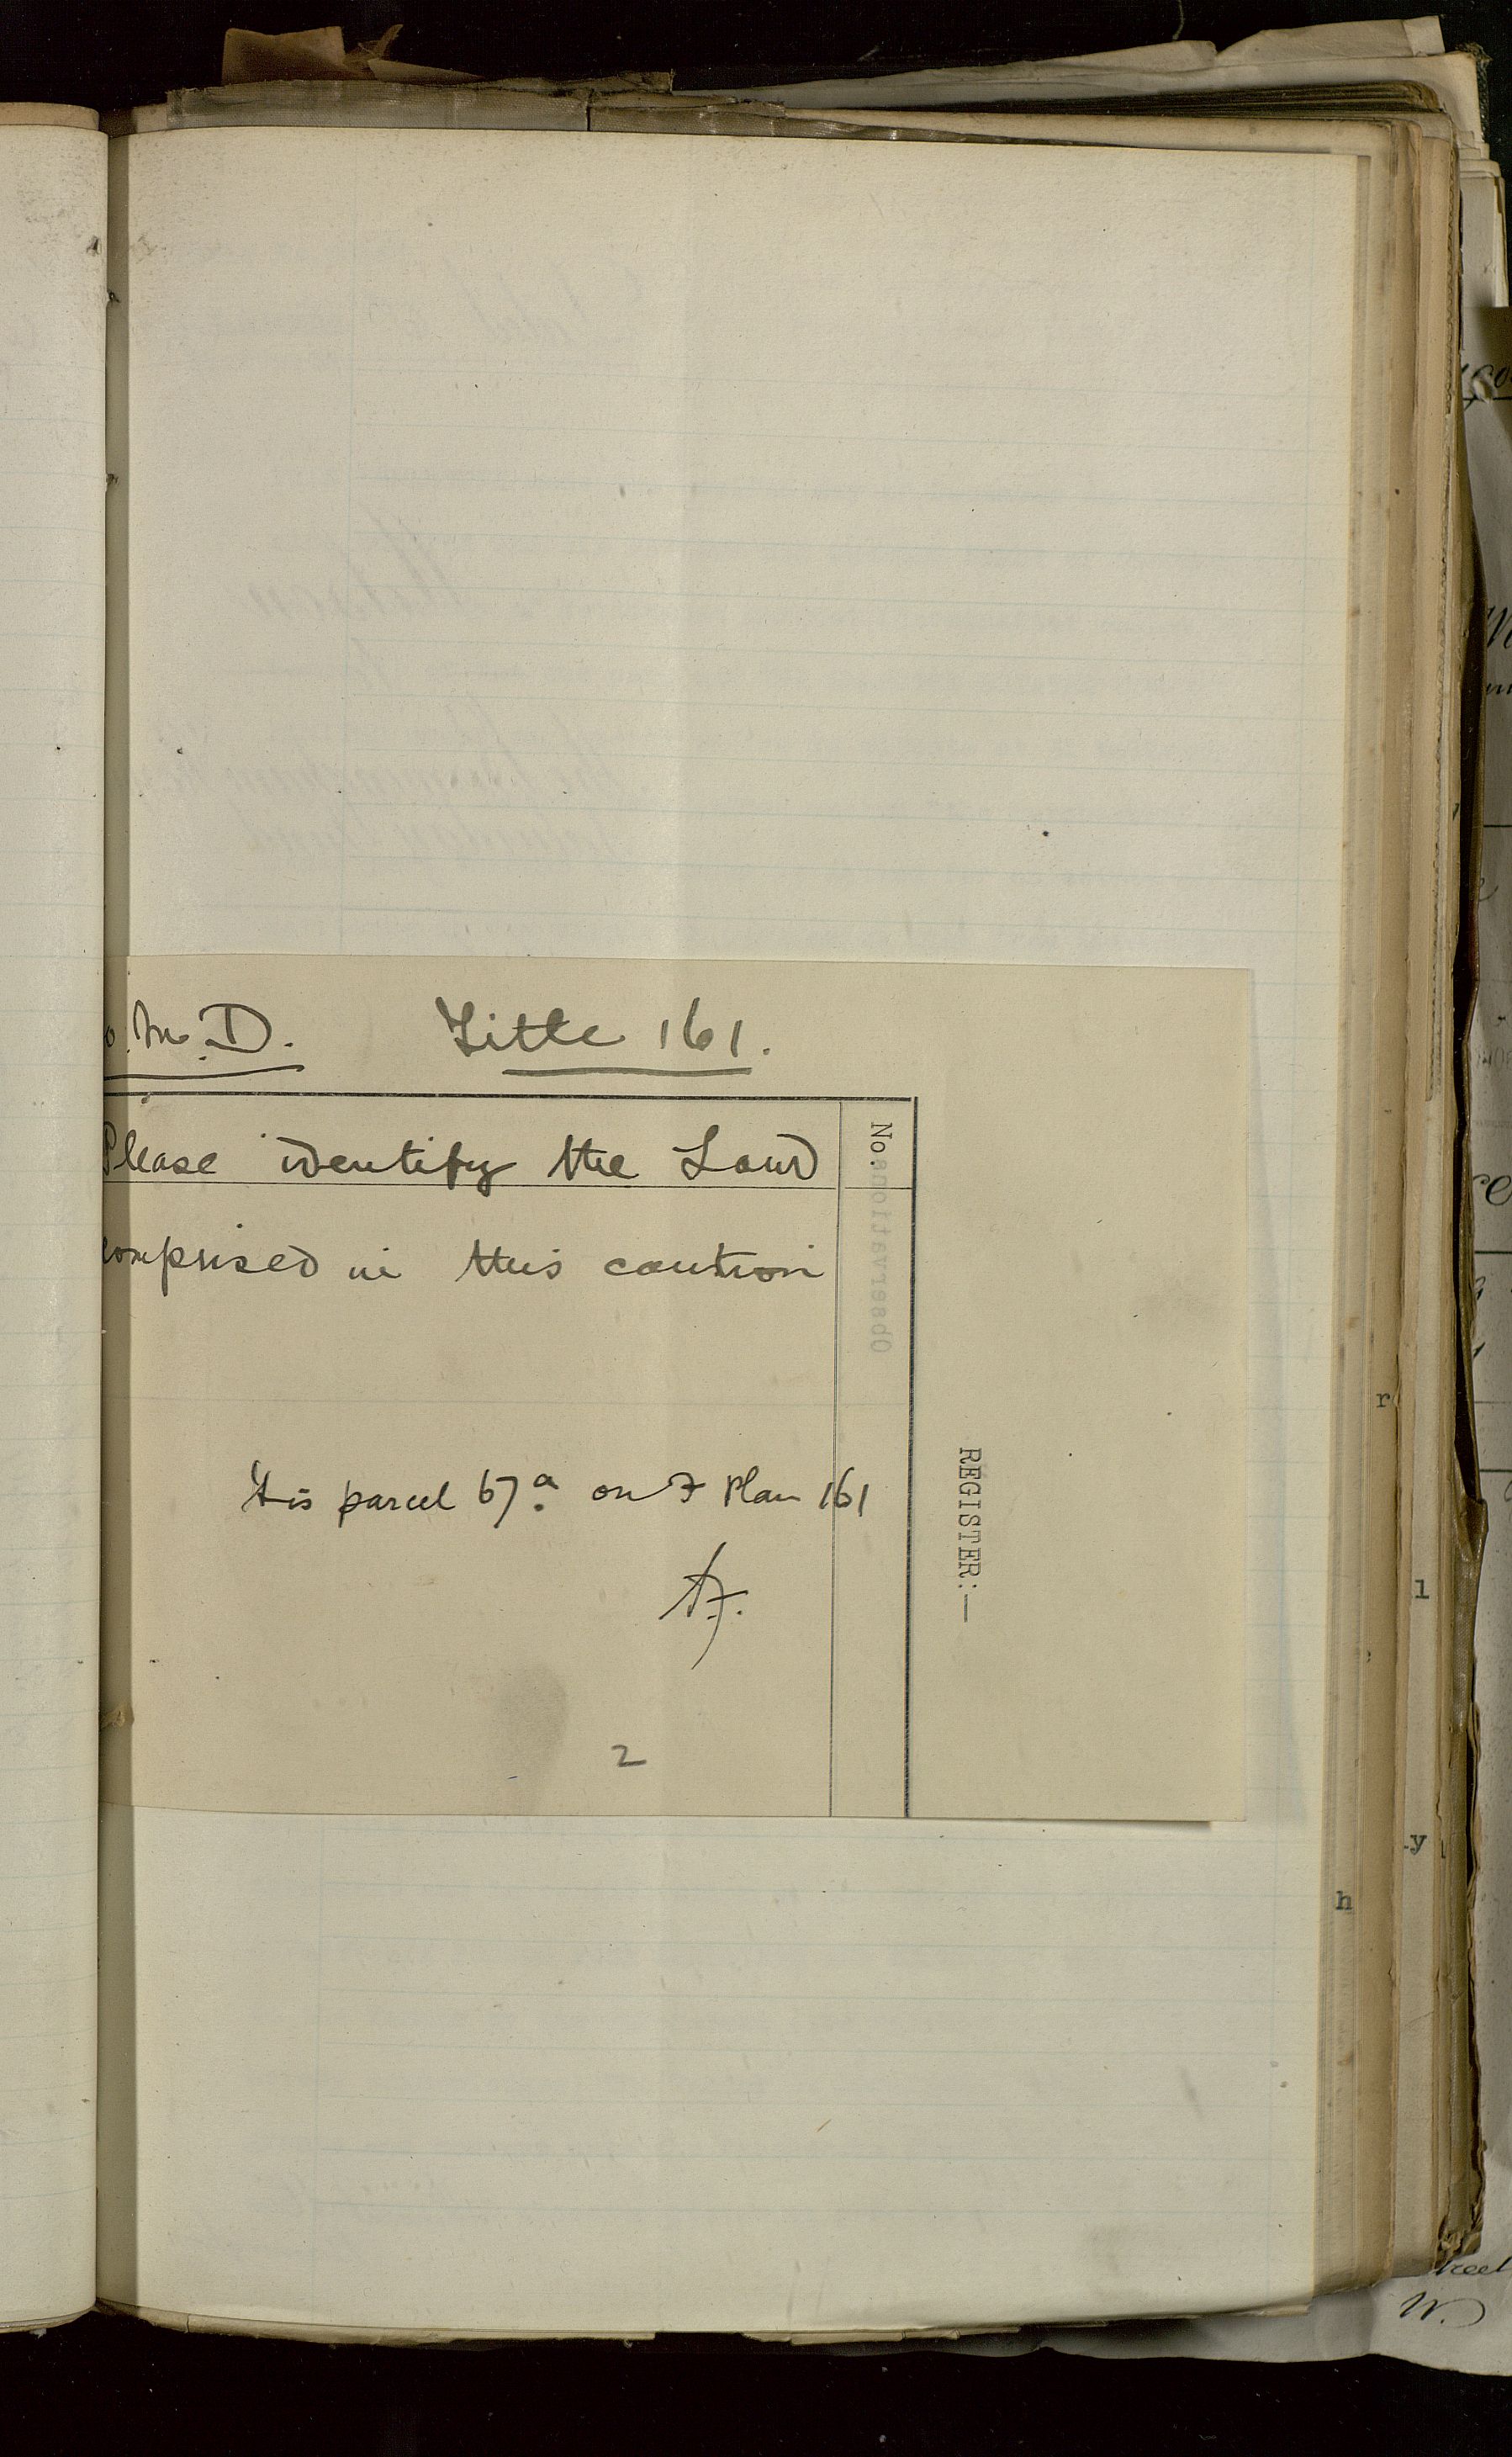 o. M. D. Title 161.
Please identify the Land
comprised in this caution
It is parcel 67a on F Plan 161
2
No.
Observations
REGISTER:—
r
l
y
h
W.